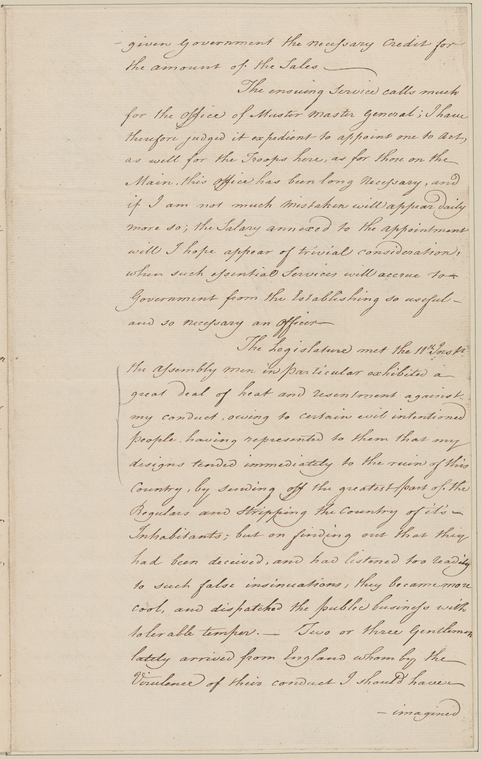 - given Government the necessary Credit for
the amount of the Sales
The ensuing Service calls much
for the Office of Muster Master General; I have
therefore judged it expedient to appoint one to Act,
as well for the Troops here, as for those on the
Main. this office has been long Necessary, and
if I am not much mistaken will appear daily
more so; the Salary annexed to the appointment
will I hope appear of trivial consideration,
when such essential Services will accrue to
Government from the Establishing so useful
and so necessary an Officer
The Legislature met the 11th Inst.
the Assembly men in particular exhibited a
great deal of heat and resentment against
my conduct. owing to certain evil intentioned
people having represented to them that my
designs tended immediately to the ruin of this
Country, by sending off the greatest part of the
Regulars and Stripping the Country of its
Inhabitants; but on finding out that they
had been deceived, and had listened too readily
to such false insinuations; they became more
cool, and dispatched the public business with
tolerable temper. — Two or three Gentlemen
lately arrived from England whom by the
Virulence of their conduct I should have
- imagined